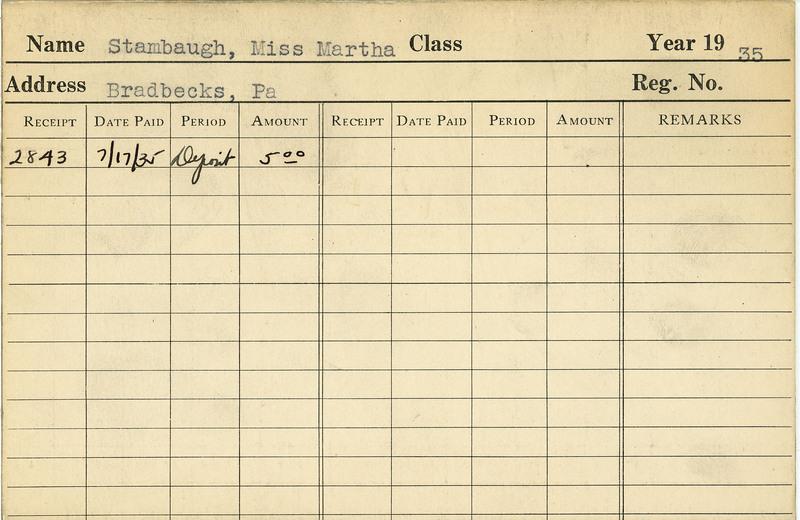 Name Stambaugh, Miss Martha Class Year 19 35
Address Bradbecks, Pa Reg. No.
RECEIPT DATE PAID PERIOD AMOUNT RECEIPT DATE PAID PERIOD AMOUNT REMARKS
2843 7/17/35 Deposit 5 00